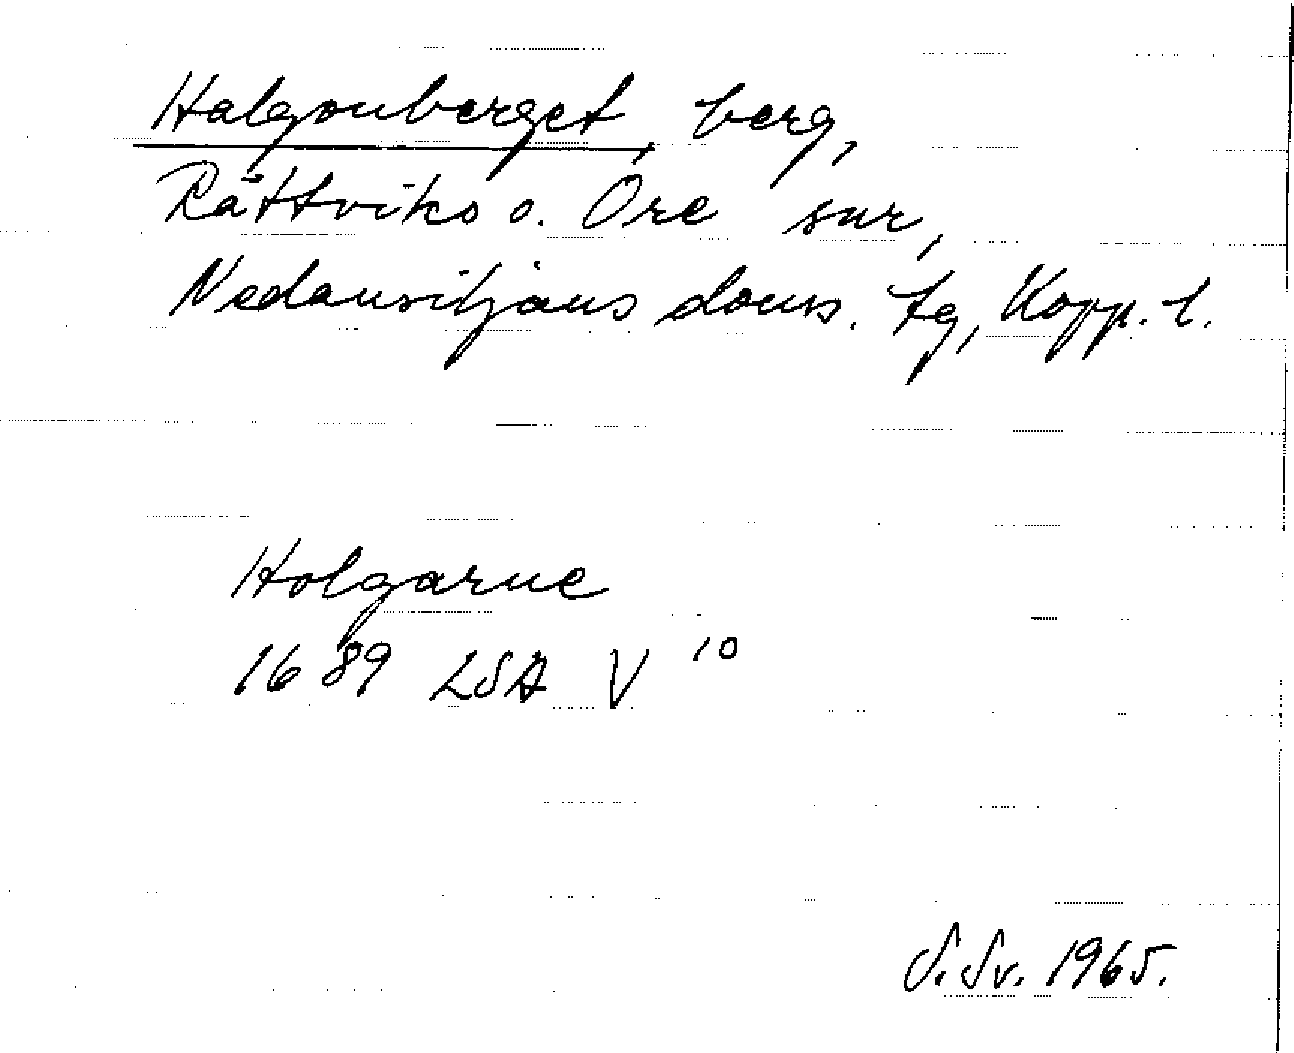 Halgonberget, berg,
Rättviks o. Ore snr,
Nedansiljans doms. tg, Kopp. l.
Holgarne
1689 LSA V 10
S. Sv. 1965.